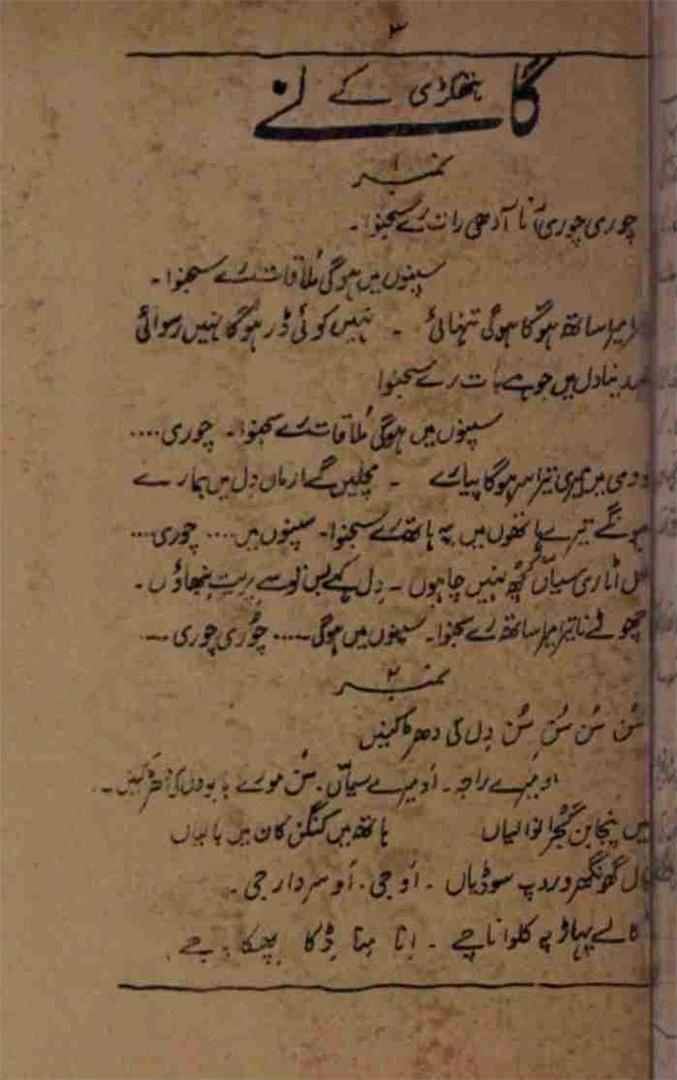 ۳
ہتھکڑی کے گانے
نمبر ۱
چوری چوری آنا آدھی رات رے سجنوا۔
سپنوں میں ہوگی مُلاقات رے سجنوا۔
میرا ساتھ ہوگا ہوگی تنہائی ۔ نہیں کوئی ڈر ہوگا نہیں رسوائی
دل میں جو ہے بات رے سجنوا
سپنوں میں ہوگی مُلاقات رے سجنوا۔ چوری....
میں میری تیرا سر ہوگا پیارے ۔ مچلیں گے ارماں دِل میں ہمارے
ہونگے تیرے ہاتھوں میں یہ ہاتھ رے سجنوا۔ سپنوں میں.... چوری....
اٹاری سیاں کچھ نہیں چاہوں ۔ دِل کہے بس توسے پریت نبھاؤں۔
چھوٹے نا تیرا میرا ساتھ رے سجنوا۔ سپنوں میں ہوگی..... چوری چوری....
نمبر ۲
سُن سُن سُن سُن دِل کی دھڑکنیں
او میرے راجہ ۔ او میرے سیاں۔ سُن مورے دل کی دھڑکنیں۔
میں پنجابن گجرانوالیاں ہاتھ میں کنگن کان میں بالیاں
گھونگھرو ۔ او جی ۔ او سردار جی ۔
کالے پہاڑ پہ کلوا ناچے ۔